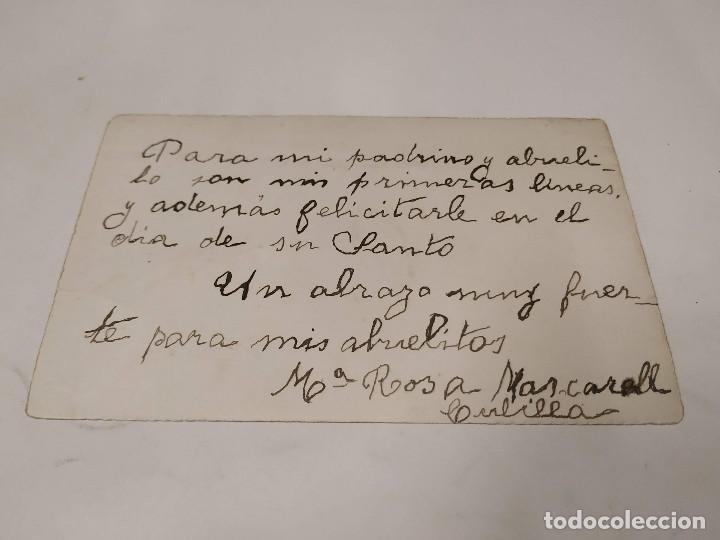 Para mi padrino y abueli-
to son mis primeras lineas,
y además felicitarle en el
dia de su Santo
Un abrazo muy fuer-
te para mis abuelitos
Mª Rosa Mascarell
Cubilla
todocoleccion